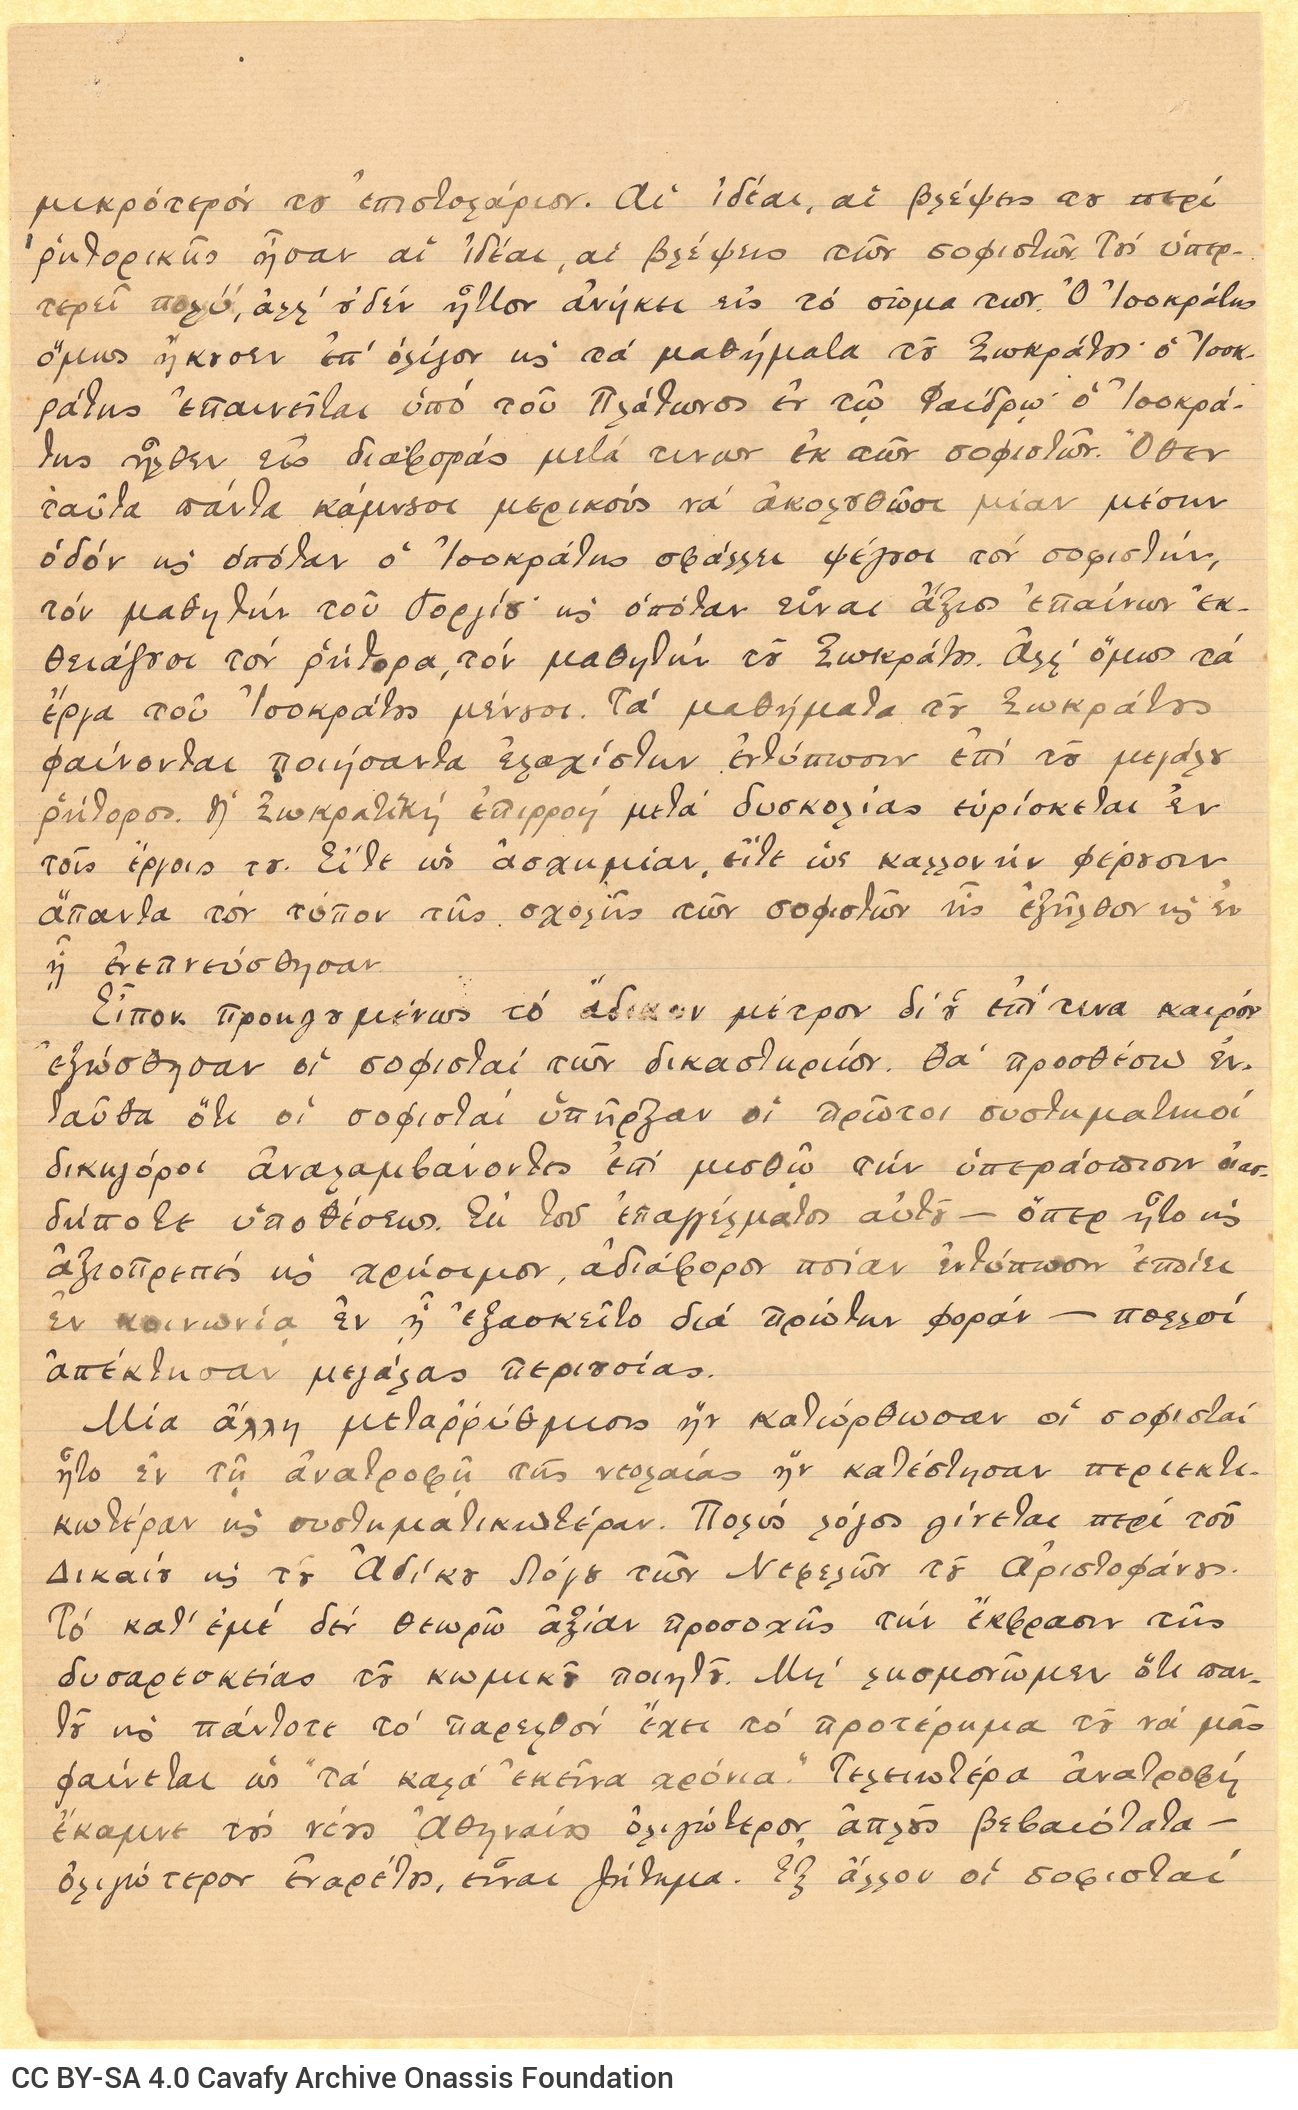 μικρότερόν του ἐπιστολάριον. Αἱ ἰδέαι, αἱ βλέψεις του περὶ
ῥητορικῆς ἦσαν αἱ ἰδέαι, αἱ βλέψεις τῶν σοφιστῶν. Τοὺς ὑπερ-
τερεῖ πολύ, ἀλλ' οὐδὲν ἧττον ἀνήκει εἰς τὸ σῶμα των. Ὁ Ἰσοκράτης
ὅμως ἤκουσεν ἐπ' ὀλίγον κ̀ τὰ μαθήματα τοῦ Σωκράτους· ὁ Ἰσοκ-
ράτης ἐπαινεῖται ὑπὸ τοῦ Πλάτωνος ἐν τῷ Φαίδρῳ· ὁ Ἰσοκρά-
της ἦλθεν εἰς διαφορὰς μετά τινων ἐκ τῶν σοφιστῶν. Ὅθεν
ταῦτα πάντα κάμνουσι μερικοὺς νὰ ἀκολουθῶσι μίαν μέσην
ὁδόν κ̀ ὁπόταν ὁ Ἰσοκράτης σφάλλει ψέγουσι τὸν σοφιστήν,
τὸν μαθητὴν τοῦ Γοργίου· κ̀ ὁπόταν εἶναι ἄξιος ἐπαίνων ἐκ-
θειάζουσι τὸν ῥήτορα, τὸν μαθητὴν τοῦ Σωκράτους. Ἀλλ' ὅμως τὰ
ἔργα τοῦ Ἰσοκράτους μένουσι. Τὰ μαθήματα τοῦ Σωκράτους
φαίνονται ποιήσαντα ἐλαχίστην ἐντύπωσιν ἐπὶ τοῦ μεγάλου
ῥήτορος. Ἡ Σωκρατικὴ ἐπιρροὴ μετὰ δυσκολίας εὑρίσκεται ἐν
τοῖς ἔργοις του. Εἴτε ὡς ἀσχημίαν, εἴτε ὡς καλλονὴν φέρουσιν
ἅπαντα τὸν τύπον τῆς σχολῆς τῶν σοφιστῶν ἧς ἐξῆλθον κ̀ ἐν
ᾗ ἐνεπνεύσθησαν
Εἶπον προηγουμένως τὸ ἄδικον μέτρον δι' οὗ ἐπί τινα καιρὸν
ἐξώσθησαν οἱ σοφισταὶ τῶν δικαστηρίων. Θὰ προσθέσω ἐν-
ταῦθα ὅτι οἱ σοφισταὶ ὑπῆρξαν οἱ πρῶτοι συστηματικοὶ
δικηγόροι ἀναλαμβάνοντες ἐπὶ μισθῷ τὴν ὑπεράσπισιν οἱασ-
δήποτε ὑποθέσεως. Ἐκ τοῦ ἐπαγγέλματος αὐτοῦ — ὅπερ ἦτο κ̀
ἀξιοπρεπὲς κ̀ χρήσιμον, ἀδιάφορον ποίαν ἐντύπωσιν ἐποίει
ἐν κοινωνίᾳ ἐν ᾗ ἐξασκεῖτο διὰ πρώτην φοράν — πολλοὶ
ἀπέκτησαν μεγάλας περιουσίας.
Μία ἄλλη μεταῤῥύθμισις ἣν κατώρθωσαν οἱ σοφισταὶ
ἦτο ἐν τῇ ἀνατροφῇ τῆς νεολαίας ἣν κατέστησαν περιεκτι-
κωτέραν κ̀ συστηματικωτέραν. Πολὺς λόγος γίνεται περὶ τοῦ
Δικαίου κ̀ τοῦ Ἀδίκου Λόγου τῶν Νεφελῶν τοῦ Ἀριστοφάνους.
Τὸ κατ' ἐμὲ δὲν θεωρῶ ἀξίαν προσοχῆς τὴν ἔκφρασιν τῆς
δυσαρεσκείας τοῦ κωμικοῦ ποιητοῦ. Μὴ λησμονῶμεν ὅτι παν-
τοῦ κ̀ πάντοτε τὸ παρελθὸν ἔχει τὸ προτέρημα τοῦ νὰ μᾶς
φαίνεται ὡς "τὰ καλὰ ἐκεῖνα χρόνια." Τελειωτέρα ἀνατροφὴ
ἔκαμνε τοὺς νέους Ἀθηναίους ὀλιγώτερον ἁπλοῦς βεβαιότατα —
ὀλιγώτερον ἐναρέτους, εἶναι ζήτημα. Ἐξ ἄλλου οἱ σοφισταὶ
CC BY-SA 4.0 Cavafy Archive Onassis Foundation